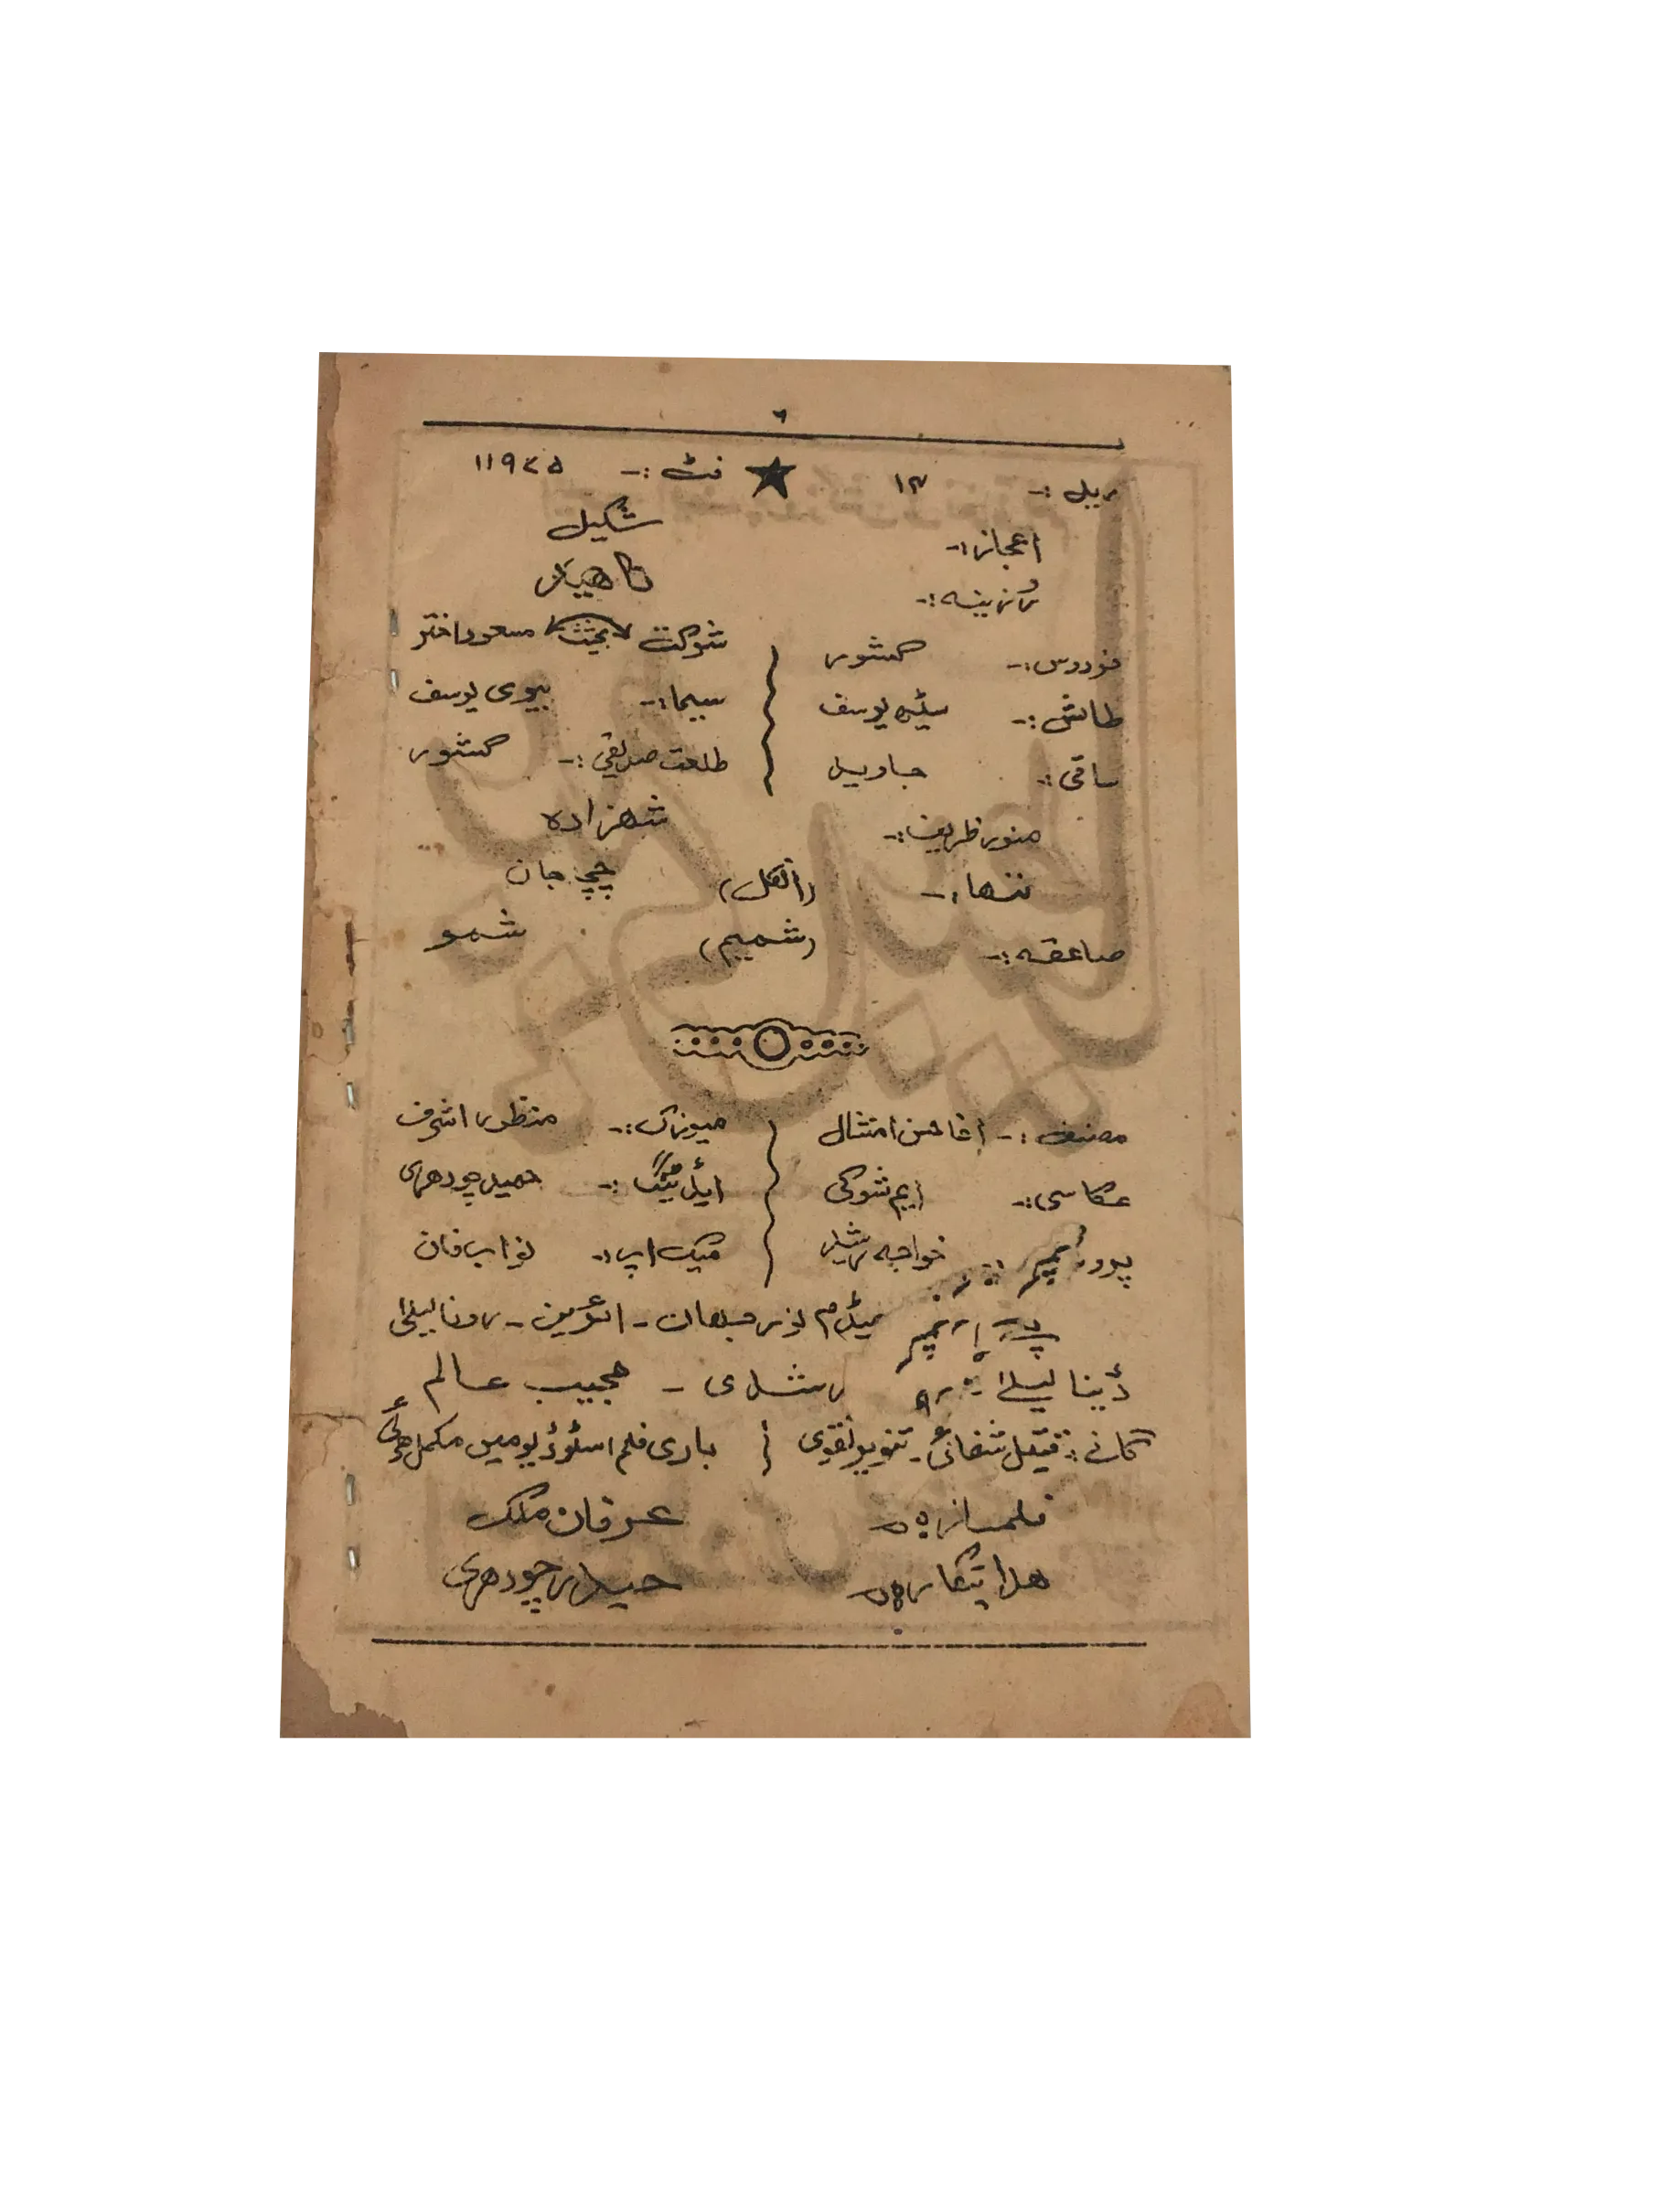 ۶
ریل :- ۱۴ ★ فٹ :- ۱۱۹۷۵
اعجاز :- شکیل
روزینہ :- ناهید
فردوس :- کشور شوکت مسعود اختر
طالش :- سیٹھ یوسف سیما :- بیوی یوسف
ساقی :- جاوید طلعت صدیقی :- کشور
منور ظریف :- شهزادہ
ننھا :- (انکل) چچ جان
صاعقہ :- (شمیم) شمو
مصنف :- آغا حسن امتثال میوزک :- منظور اشرف
عکاسی :- ایم شوکی ایڈیٹنگ :- حمید چودھری
خواجہ رشید میک اپ :- نواب خان
میڈم نور جہاں - آئرین - رونا لیلیٰ
ڈینا لیلیٰ رشدی - مجیب عالم
گانے :- قتیل شفائی - تنویر نقوی باری فلم اسٹوڈیو میں مکمل ہوئی
فلمساز :- عرفان ملک
ہدایتکار :- حیدر چودھری